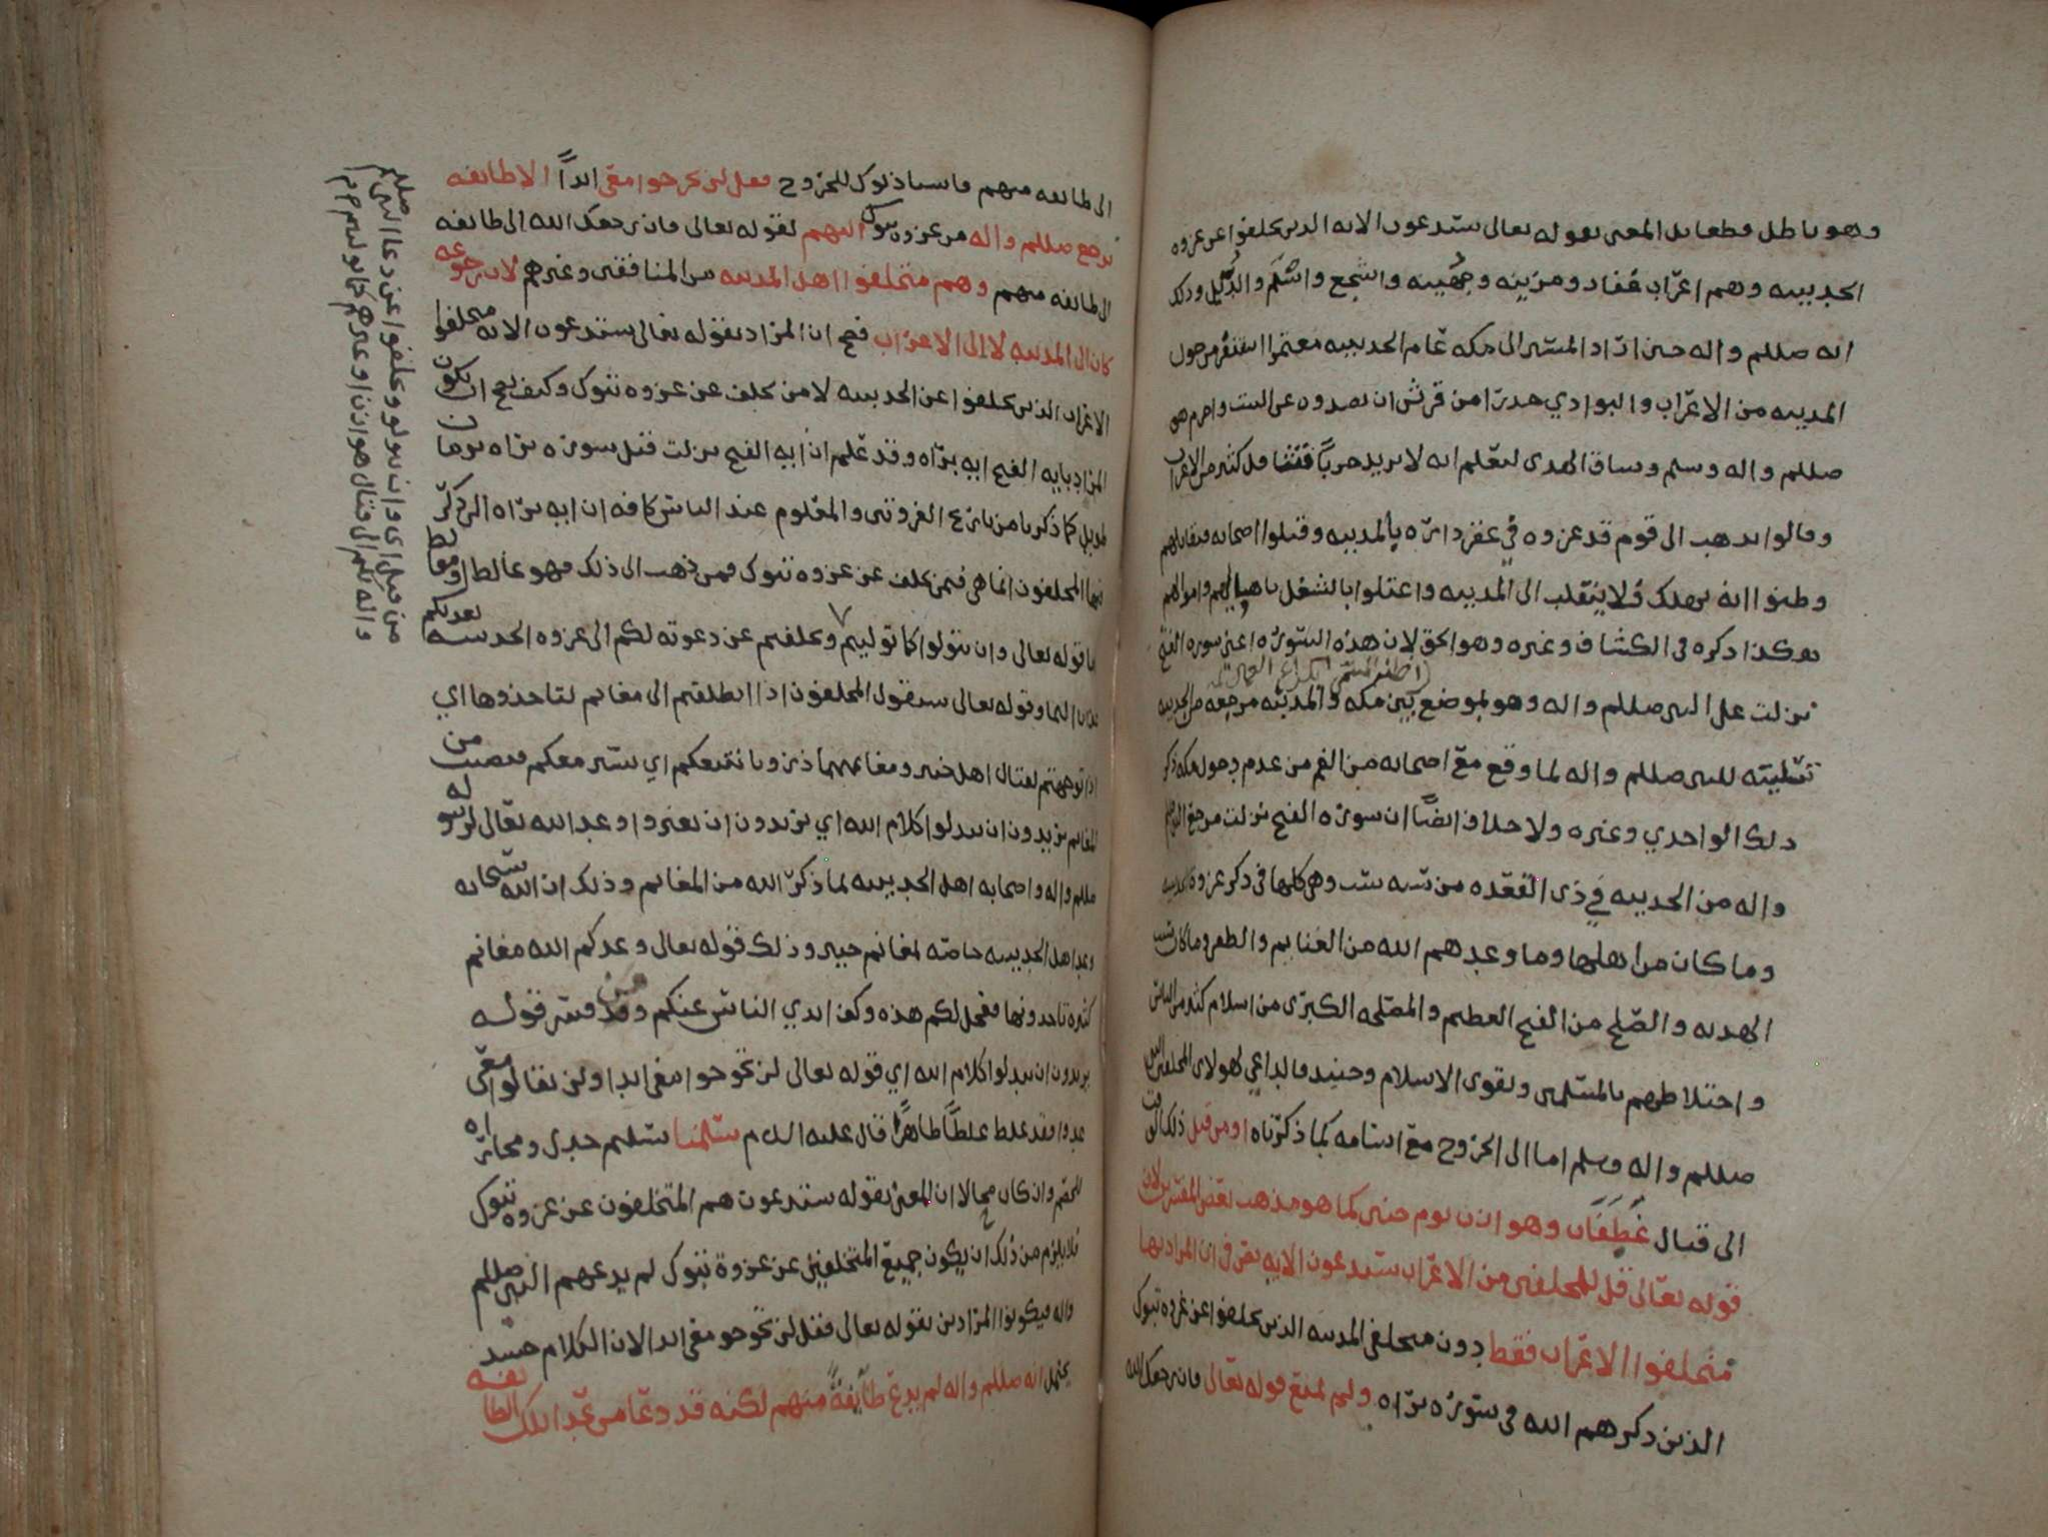 وهو باطل قطعا بل المعنى بقوله تعالى ستدعون الايه الذين تخلفوا عن غزوه
الحديبيه وهم اعراب غفار ومزينه وجهينه واشجع واسلم والدئل وذلك
انه صللم واله حين اراد المسير الى مكه عام الحديبيه معتمرا استنفر من حول
المدينه من الاعراب والبوادي حذرا من قرش ان يصدوه عن البيت واحرم هو
صللم واله وسلم وساق الهدى ليعلم انه لا يريد حربا فتثاقل كثير من الاعراب
وقالوا يذهب الى قوم قد غزوه في عقر داره بالمدينه وقتلوا اصحابه فيقاتلهم
وظنوا انه يهلك ولا ينقلب الى المدينه واعتلوا بالشغل باهاليهم واموالهم
هكذا ذكره في الكشاف وغيره وهو الحق لان هذه السوره اعني سوره الفتح
نزلت على النبي صللم واله وهو بموضع بين مكه والمدينه مرجعه من الحديبيه
تسليته للنبي صللم واله لما وقع مع اصحابه من الغم من عدم دخول مكه ذكر
ذلك الواحدي وغيره ولا خلاف ايضًا ان سوره الفتح نزلت مرجع النبي صللم
واله من الحديبيه في ذى القعده من سنه ست وهي كلها في ذكر غزوة الحديبيه
وما كان من اهلها وما وعدهم الله من الغنايم والظفر وما كان بسبب
الهدنه والصلح من الفتح العظيم والمصلحه الكبرى من اسلام كثير من الناس
واختلاطهم بالمسلمين وتقوى الاسلام وحينئد فالداعي لهولاى المخلفين النبي
صللم واله وسلم اما الى الخروج مع اسامه كما ذكرناه او من قبل ذلك الوقت
الى قتال غطفان وهوازن يوم حنين كما هو مذهب بعض المفسرين لان
قوله تعالى قل للمخلفين من الاعراب ستدعون الايه يقتضي ان المراد بها
متخلفوا الاعراب فقط دون متخلفى المدينه الذين تخلفوا عن غزوه تبوك
الذين ذكرهم الله في سوره براه ولم يمنع قوله تعالى فان رجعك الله
الى طائفه منهم فاستاذنوك للخروج فقل لن تخرجوا معى ابداً الا طايفه
رجع صللم واله من غزوه تبوك اليهم لقوله تعالى فان رجعك الله الى طائفه
الى طائفه منهم وهم متخلفوا اهل المدينه من المنافقين وغيرهم لان رجوعه
كان الى المدينه لا الى الاعراب فصح ان المراد بقوله تعالى ستدعون الايه متخلفوا
الاعراب الذين تخلفوا عن الحديبيه لا من تخلف عن غزوه تبوك وكيف يصح ان يكون
المراد بايه الفتح ايه براه وقد علم ان ايه الفتح نزلت قبل سوره براه بزمان
طويل كما ذكرنا من تاريخ الغزوتين والمعلوم عند الناس كافه ان ايه براه التي ذكر
فيها المخلفون انما هي فيمن تخلف عن غزوه تبوك فمن ذهب الى ذلك فهو غالط او مغالط
اما قوله تعالى وان تتولوا كما توليتم وتخلفتم عن دعوته لكم الى غزوه الحديبيه
الى الما وقوله تعالى سيقول المخلفون اذا انطلقتم الى مغانم لتاخذوها اي
اذا توجهتم لقتال اهل خيبر ومغانمهما ذرونا نتبعكم اي نسير معكم فنصيب من
المغانم يريدون ان يبدلوا كلام الله اي يريدون ان يغيروا وعد الله تعالى لرسوله
صللم واله واصحابه اهل الحديبيه لما ذكر الله من المغانم وذلك ان الله سبحانه
وعد اهل الحديبيه خاصه لمغانم خيبر وذلك قوله تعالى وعدكم الله مغانم
كثيره تاخدونها فعجل لكم هذه وكف ايدي الناس عنكم ومن فسر قوله
يريدون ان يبدلوا كلام الله اي قوله تعالى لن تخرجوا معى ابدا ولن تقاتلوا معى
عدوا فقد غلط غلطاً ظاهراً قال عليه السلام سلمنا تسليم جدل ومجاراه
للخصم وان كان محالا ان المعنى بقوله ستدعون هم المتخلفون عن غزوه تبوك
فلا يلزم من ذلك ان يكون جميع المتخلفين عن غزوة تبوك لم يدعهم النبي صللم
واله فيكونوا المرادين بقوله تعالى فقل لن تخرجوا معى ابدا لان الكلام حينئد
يحتمل انه صللم واله لم يدع طايفةً منهم لكنه قد دعا من عدا تلك الطايفه
من قبل اي وان تولوا وتخلفوا عن دعا النبي صللم
واله لكم الى قتال هوازن او غيرهم كما توليتم